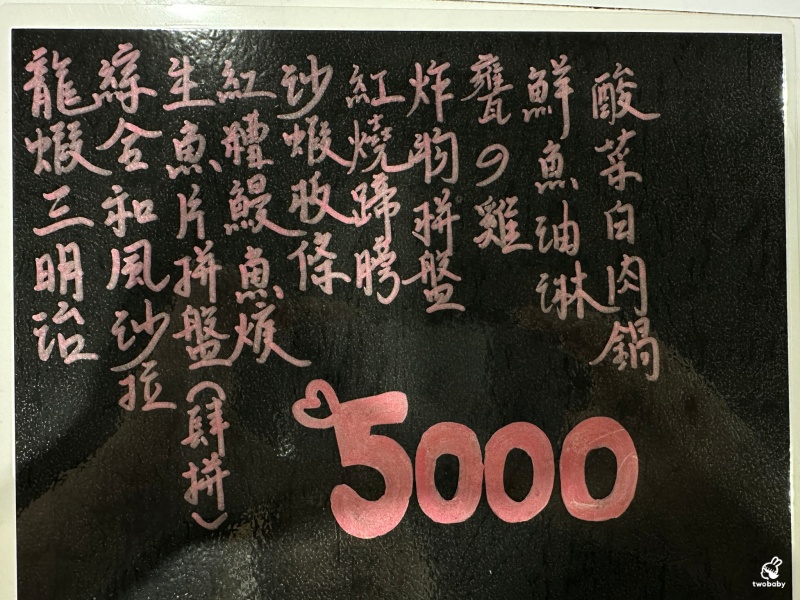 酸菜白肉鍋
鮮魚油淋
甕の雞
炸物拼盤
紅燒蹄膀
沙蝦粄條
紅糟鰻魚焿
生魚片拼盤(肆拼)
綜合和風沙拉
龍蝦三明治
5000
twobaby